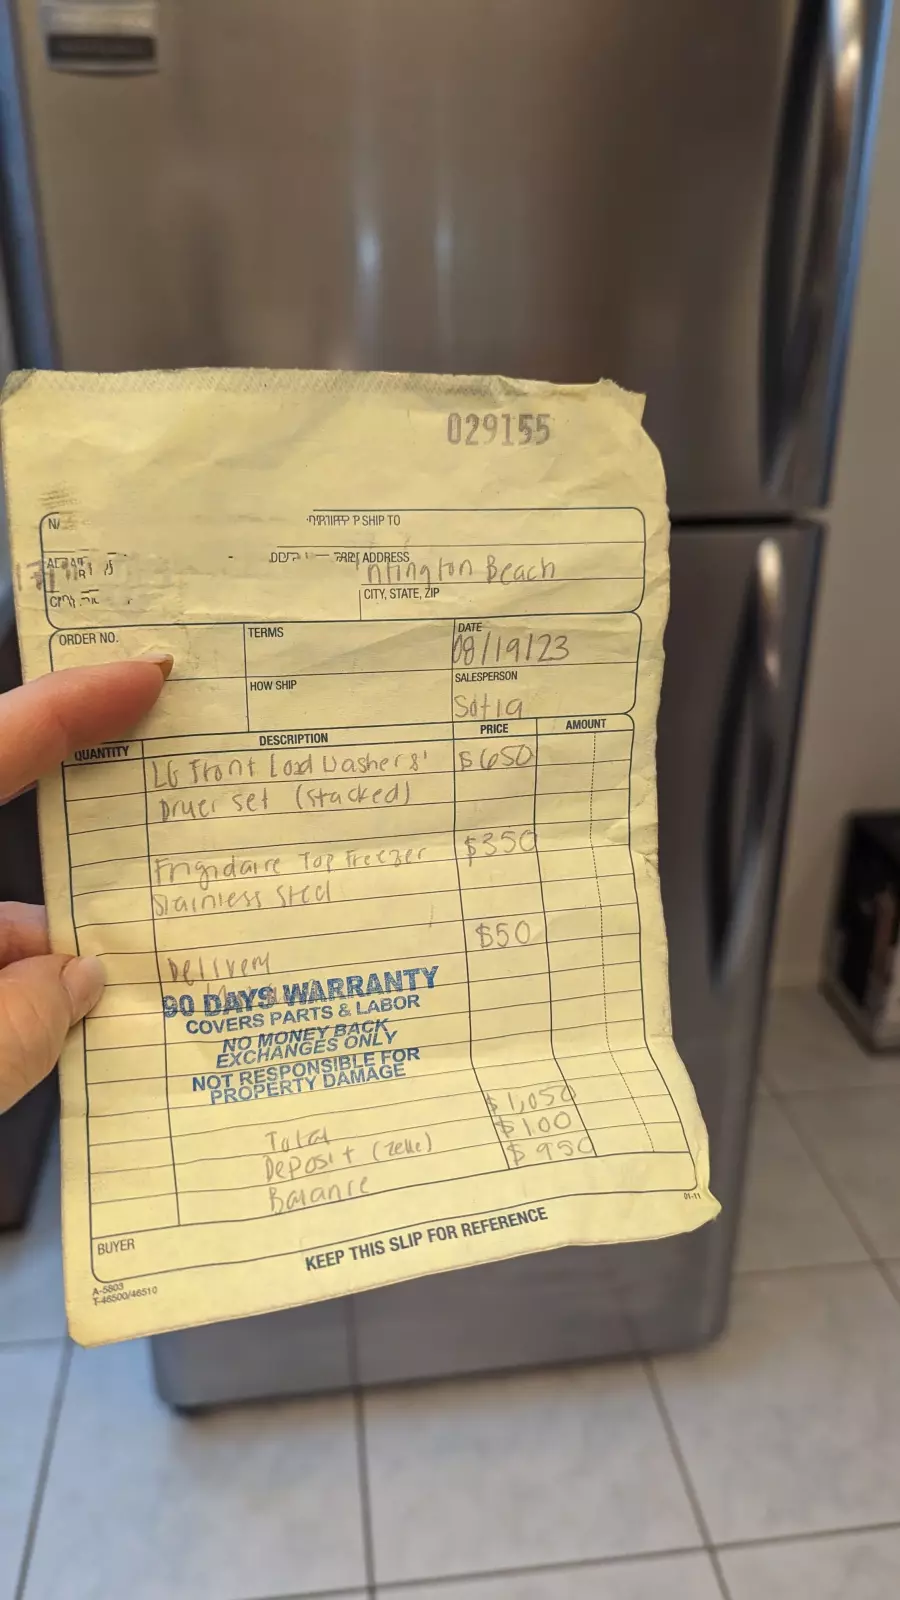 029155
SHIP TO
ADDRESS
Beach
CITY, STATE, ZIP
ORDER NO.
TERMS
DATE
08/19/23
HOW SHIP
SALESPERSON
QUANTITY
DESCRIPTION
PRICE
AMOUNT
LG Front Load Washer &
$650
Dryer set (stacked)
Frigidaire Top Freezer
$350
Stainless Steel
Delivery
$50
90 DAYS WARRANTY
COVERS PARTS & LABOR
NO MONEY BACK
EXCHANGES ONLY
NOT RESPONSIBLE FOR
PROPERTY DAMAGE
Total
$1,050
Deposit (zelle)
$100
Balance
$950
BUYER
KEEP THIS SLIP FOR REFERENCE
01-11
A-5803
T-46500/46510